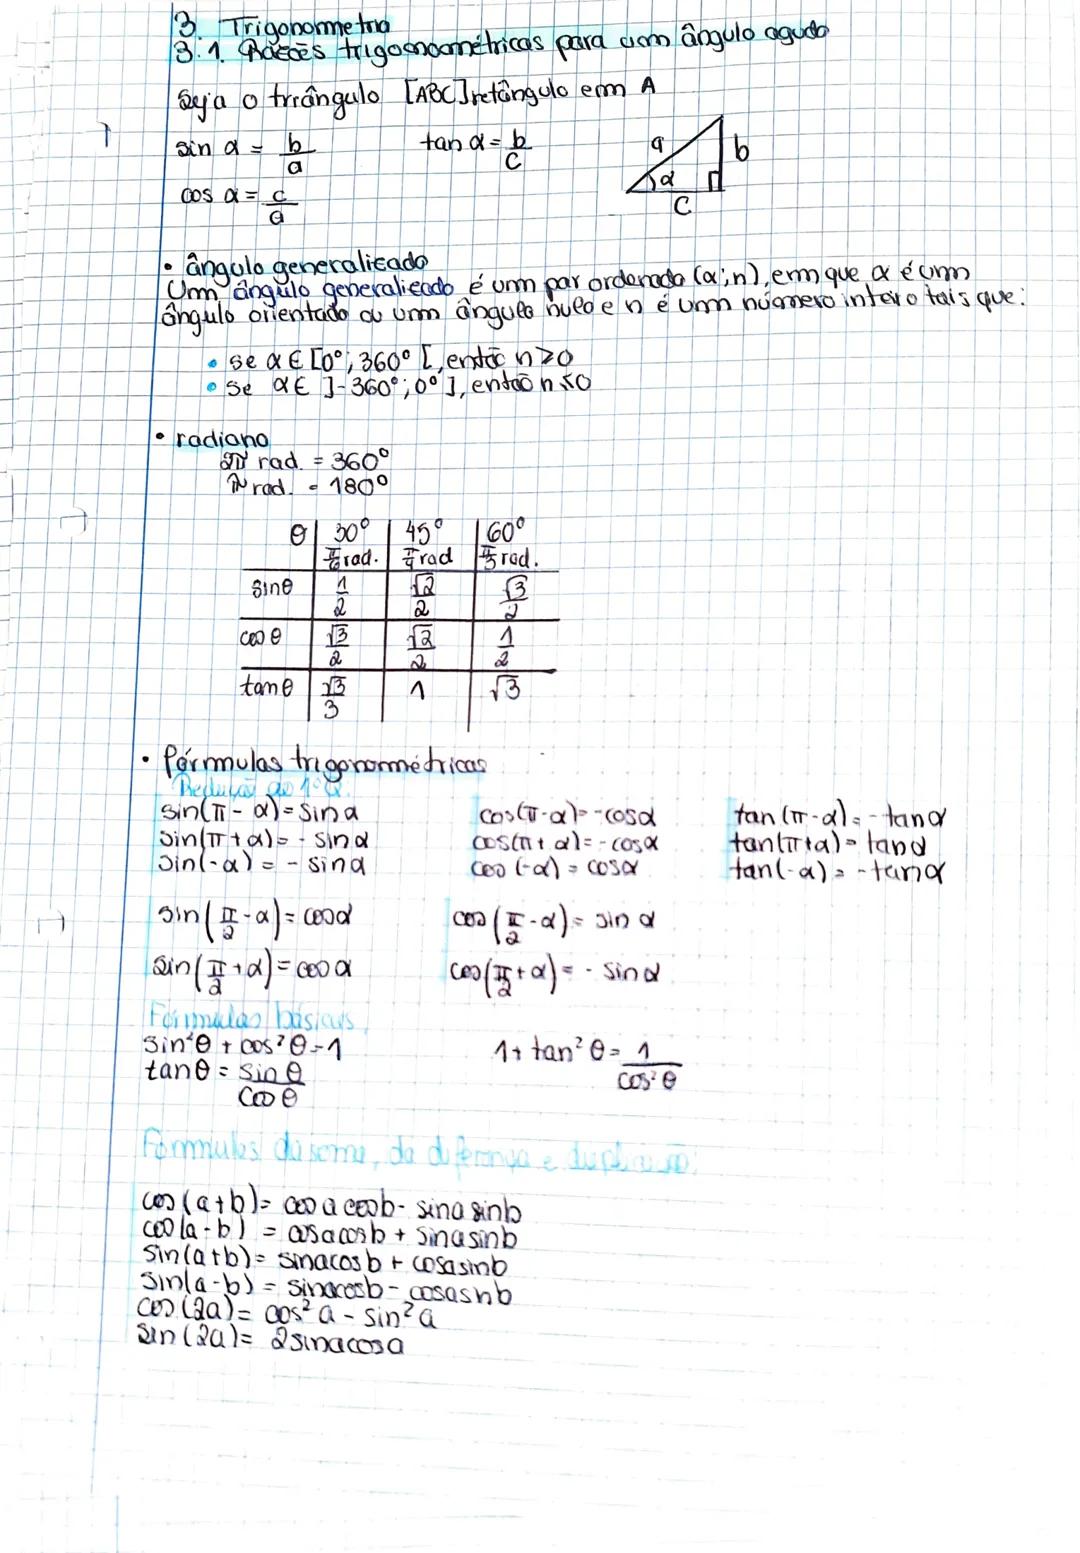 3. Trigonometria
3.1. Razões trigonométricas para um ângulo agudo
Seja o triângulo [ABC] retângulo em A
sin α = b/a tan α = b/c
cos α = c/a
a b α c
• ângulo generalizado
Um ângulo generalizado é um par ordenado (α; n), em que α é um
ângulo orientado ou um ângulo nulo e n é um número inteiro tais que:
• se α ∈ [0°; 360° [, então n ≥ 0
• se α ∈ ]-360°; 0° ], então n ≤ 0
• radiano
2π rad. = 360°
π rad. = 180°
θ 30° 45° 60°
π/6 rad. π/4 rad π/3 rad.
sin θ 1/2 √2/2 √3/2
cos θ √3/2 √2/2 1/2
tan θ √3/3 1 √3
• Fórmulas trigonométricas
Redução ao 1º Q.
sin(π - α) = sin α cos(π - α) = -cos α tan(π - α) = -tan α
sin(π + α) = - sin α cos(π + α) = - cos α tan(π + α) = tan α
sin(-α) = - sin α cos(-α) = cos α tan(-α) = -tan α
sin(π/2 - α) = cos α cos(π/2 - α) = sin α
sin(π/2 + α) = cos α cos(π/2 + α) = - sin α
Fórmulas básicas
sin²θ + cos²θ = 1 1 + tan²θ = 1/cos²θ
tan θ = sin θ/cos θ
Fórmulas da soma, da diferença e duplicação:
cos(a+b) = cos a cos b - sin a sin b
cos(a-b) = cos a cos b + sin a sin b
sin(a+b) = sin a cos b + cos a sin b
sin(a-b) = sin a cos b - cos a sin b
cos(2a) = cos²a - sin²a
sin(2a) = 2 sin a cos a